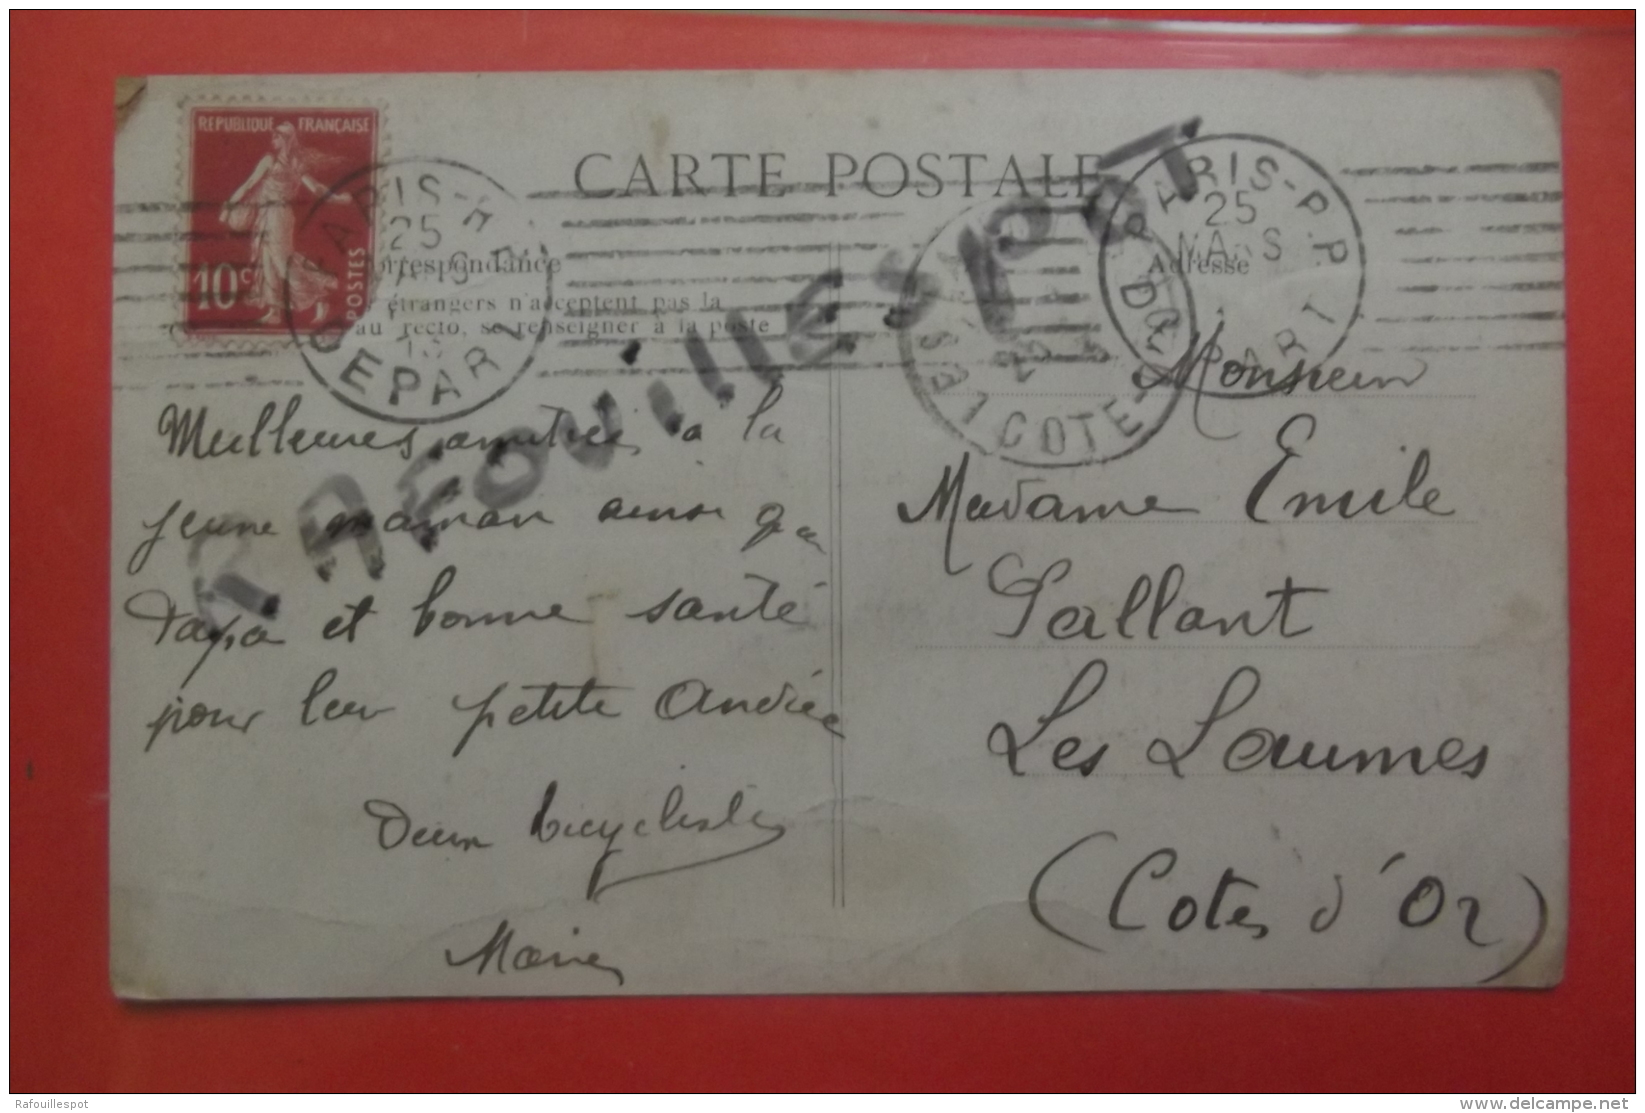 REPUBLIQUE FRANÇAISE
10c
POSTES
CARTE POSTALE
PARIS-P.P.
25
MARS
DEPART
orrespondance
Adresse
étrangers n'acceptent pas la
au recto, se renseigner à la poste
RAFOUILLESPOT
COTE-D
Meilleures amitiés à la
jeune maman ainsi qu
papa et bonne santé
pour leur petite Andrée
Deux bicyclistes
Monsieur
Madame Emile
Pallant
Les Laumes
(Cotes d'Or)
Rafouillespot
www.delcampe.net